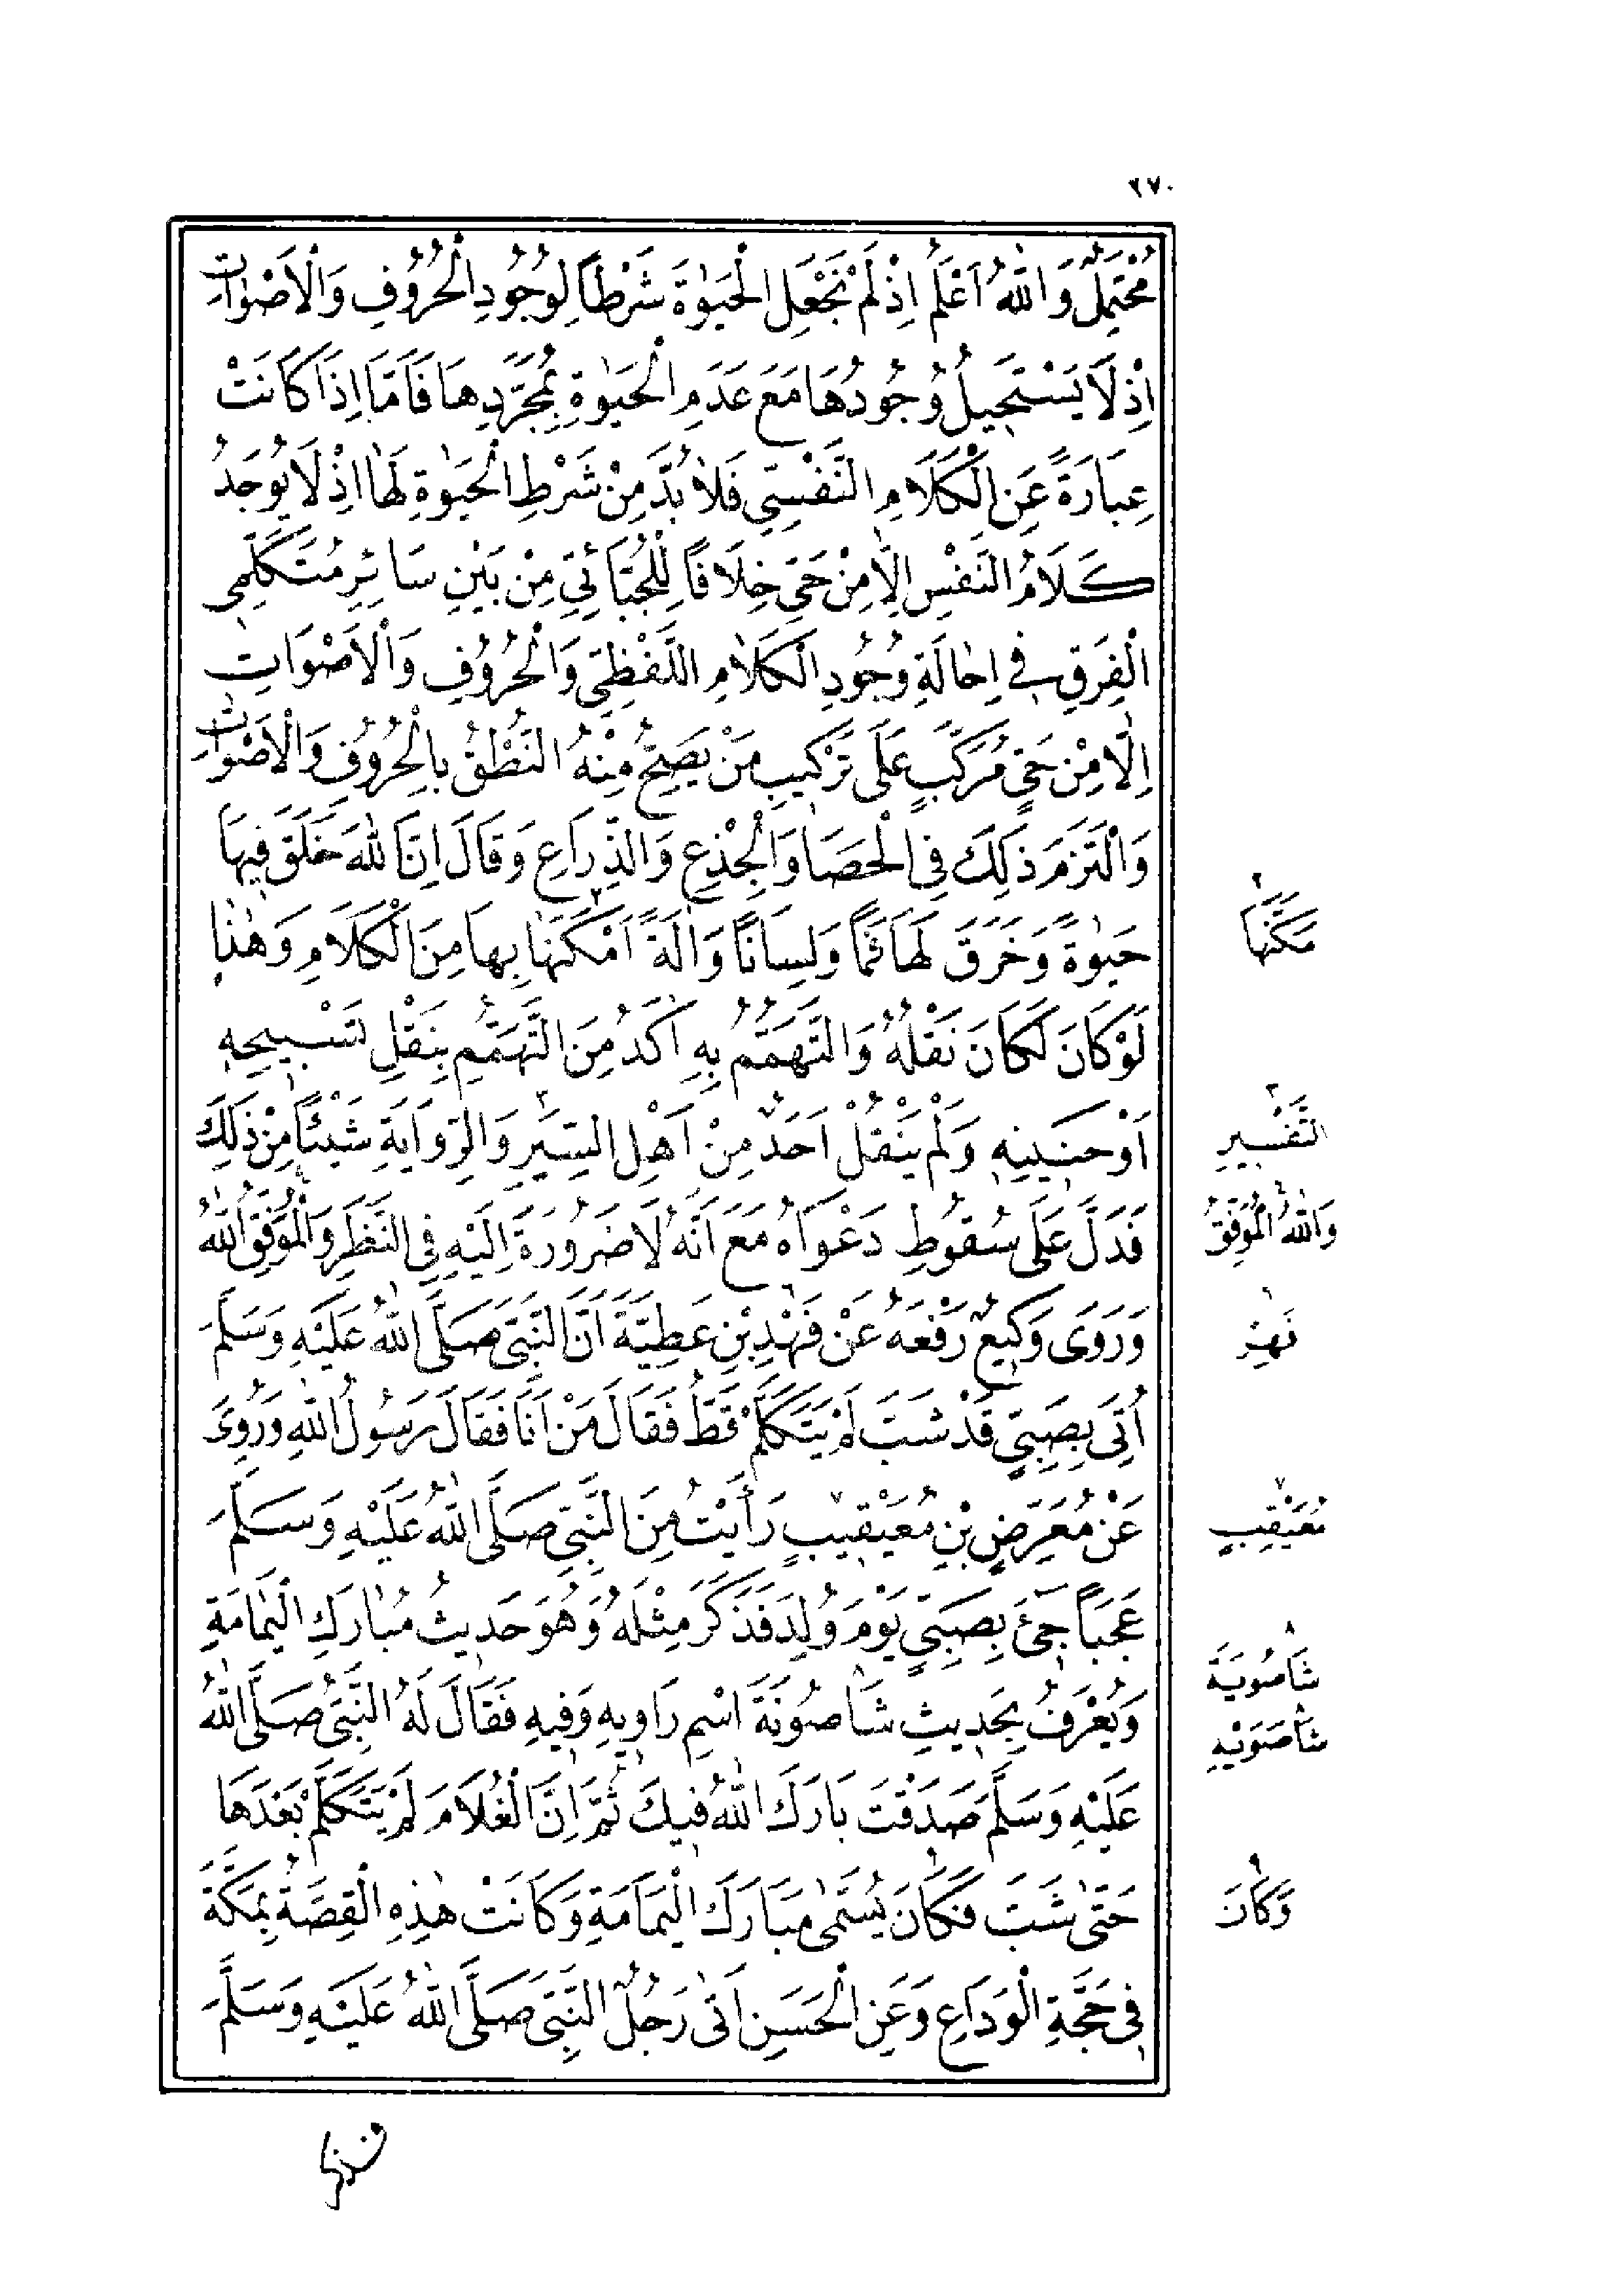 ٢٧٠
مُحْتَمِلٌ وَاللّٰهُ اَعْلَمُ اِذْ لَمْ نَجْعَلِ الْحَيٰوةَ شَرْطًا لِوُجُودِ الْحُرُوفِ وَالْاَصْوَاتِ
اِذْ لَا يَسْتَحِيلُ وُجُودُهَا مَعَ عَدَمِ الْحَيٰوةِ بِمُجَرَّدِهَا فَاَمَّا اِذَا كَانَتْ
عِبَارَةً عَنِ الْكَلَامِ النَّفْسِيِّ فَلَا بُدَّ مِنْ شَرْطِ الْحَيٰوةِ لَهَا اِذْ لَا يُوجَدُ
كَلَامُ النَّفْسِ اِلَّا مِنْ حَيٍّ خِلَافًا لِلْجُبَّائِيِّ مِنْ بَيْنِ سَائِرِ مُتَكَلِّمِي
الْفِرَقِ فِي اِحَالَةِ وُجُودِ الْكَلَامِ اللَّفْظِيِّ وَالْحُرُوفِ وَالْاَصْوَاتِ
اِلَّا مِنْ حَيٍّ مُرَكَّبٍ عَلَى تَرْكِيبِ مَنْ يَصِحُّ مِنْهُ النُّطْقُ بِالْحُرُوفِ وَالْاَصْوَاتِ
وَالْتَزَمَ ذٰلِكَ فِي الْحَصَا وَالْجِذْعِ وَالذِّرَاعِ وَقَالَ اِنَّ اللّٰهَ خَلَقَ فِيهَا
حَيٰوةً وَخَرَقَ لَهَا فَمًا وَلِسَانًا وَاٰلَةً اَمْكَنَهَا بِهَا مِنَ الْكَلَامِ وَهٰذَا
مَكَّنَهَا
لَوْ كَانَ لَكَانَ نَقْلُهُ وَالتَّهَمُّمُ بِهِ اٰكَدُ مِنَ التَّهَمُّمِ بِنَقْلِ تَسْبِيحِهِ
اَوْ حَنِينِهِ وَلَمْ يَنْقُلْ اَحَدٌ مِنْ اَهْلِ السِّيَرِ وَالرِّوَايَةِ شَيْئًا مِنْ ذٰلِكَ
التَّفْسِيرِ
فَدَلَّ عَلَى سُقُوطِ دَعْوَاهُ مَعَ اَنَّهُ لَا ضَرُورَةَ اِلَيْهِ فِي النَّظَرِ وَالْمُوَفِّقُ اللّٰهُ
وَاللّٰهُ الْمُوَفِّقُ
وَرَوَى وَكِيعٌ رَفَعَهُ عَنْ فَهْدِ بْنِ عَطِيَّةَ اَنَّ النَّبِيَّ صَلَّى اللّٰهُ عَلَيْهِ وَسَلَّمَ
اُتِيَ بِصَبِيٍّ قَدْ شَبَّ لَمْ يَتَكَلَّمْ قَطُّ فَقَالَ مَنْ اَنَا فَقَالَ رَسُولُ اللّٰهِ وَرُوِيَ
عَنْ مُعَرِّضِ بْنِ مُعَيْقِيبٍ رَاَيْتُ مِنَ النَّبِيِّ صَلَّى اللّٰهُ عَلَيْهِ وَسَلَّمَ
مُعَيْقِبٍ
عَجَبًا جِيءَ بِصَبِيٍّ يَوْمَ وُلِدَ فَذَكَرَ مِثْلَهُ وَهُوَ حَدِيثُ مُبَارَكِ الْيَمَامَةِ
شَاصُويَةَ
وَيُعْرَفُ بِحَدِيثِ شَاصُونَةَ اسْمِ رَاوِيهِ وَفِيهِ فَقَالَ لَهُ النَّبِيُّ صَلَّى اللّٰهُ
شَاصَوَيْهِ
عَلَيْهِ وَسَلَّمَ صَدَقْتَ بَارَكَ اللّٰهُ فِيكَ ثُمَّ اِنَّ الْغُلَامَ لَمْ يَتَكَلَّمْ بَعْدَهَا
حَتَّى شَبَّ فَكَانَ يُسَمَّى مُبَارَكَ الْيَمَامَةِ وَكَانَتْ هٰذِهِ الْقِصَّةُ بِمَكَّةَ
وَكَانَ
فِي حَجَّةِ الْوَدَاعِ وَعَنِ الْحَسَنِ اَتَى رَجُلٌ النَّبِيَّ صَلَّى اللّٰهُ عَلَيْهِ وَسَلَّمَ